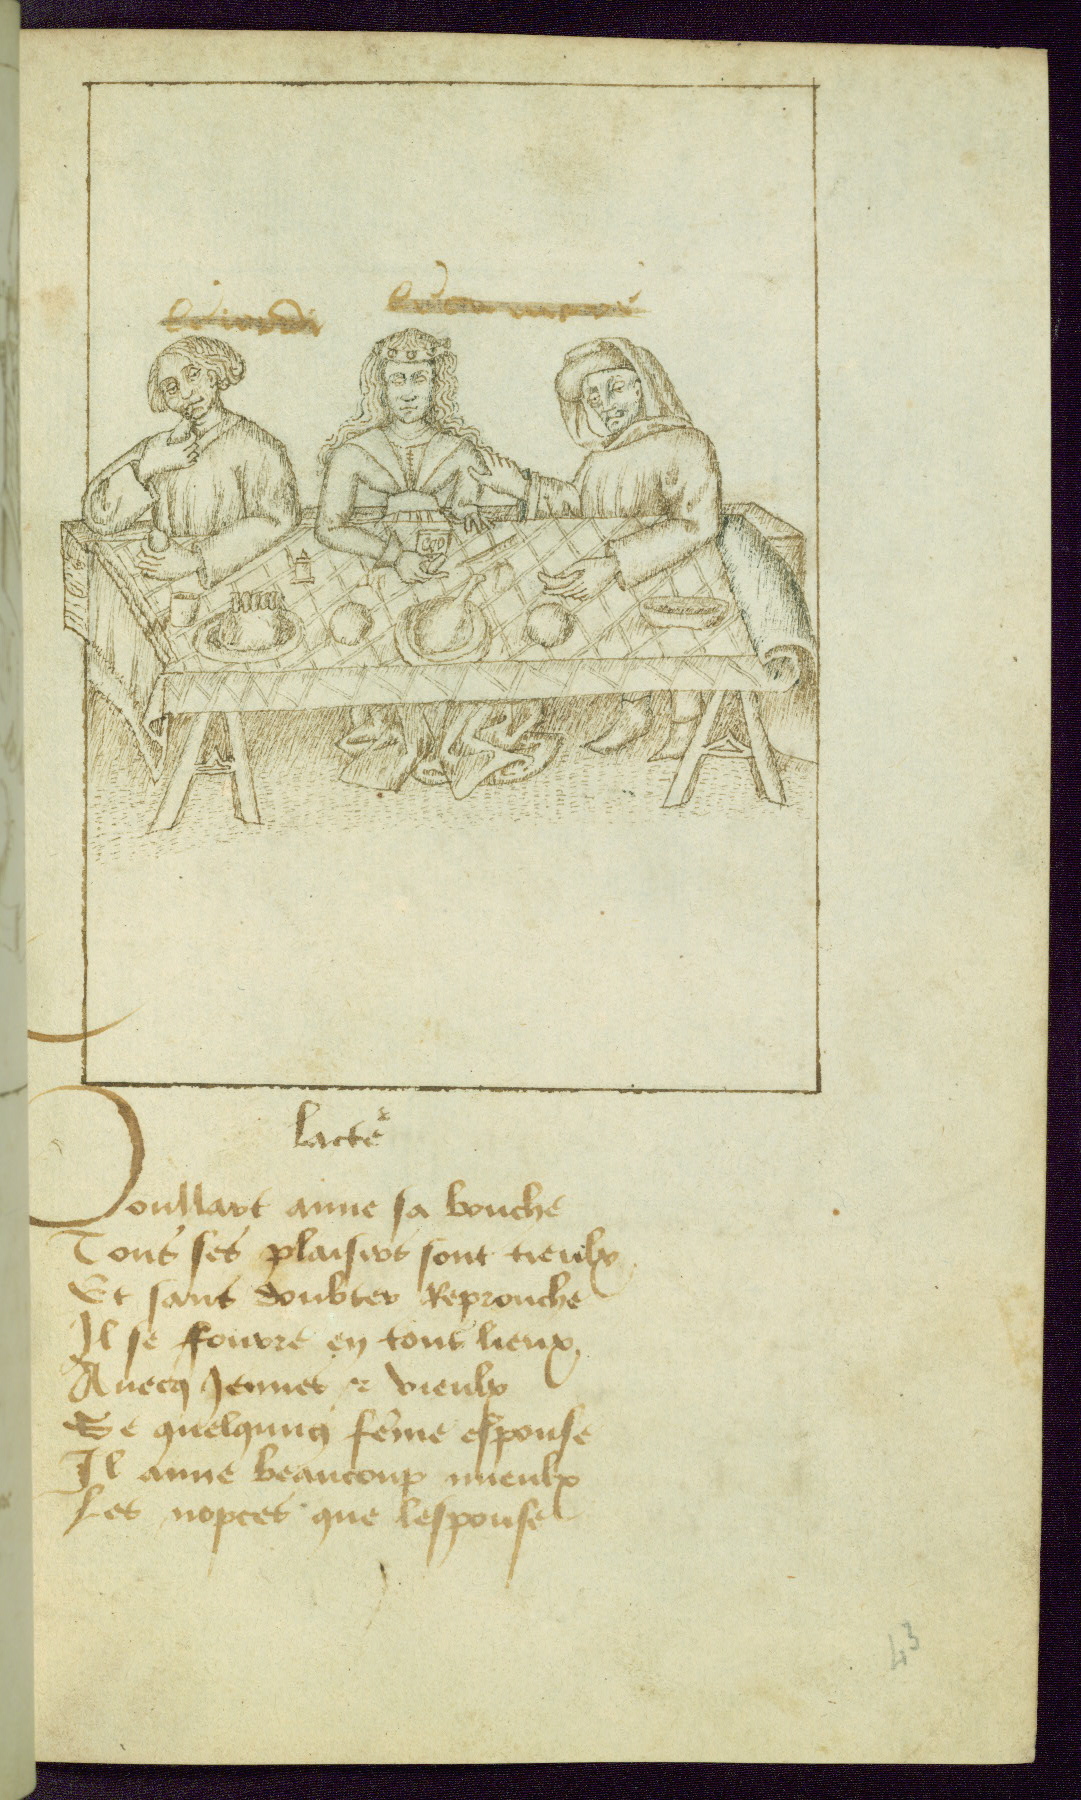 lacte᷑
Doullart aime sa bouche
Tous ses plaisirs sont tieulx
Et sans doubter Reprouche
Il se fourre en tous lieux
Avecq Jennes et vieulx
Se quelquung fẽme espouse
Il aime beaucoup mieulx
Les nopces que lespouse
43